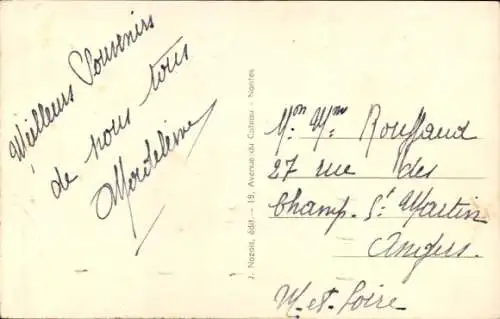 Meilleurs Souvenirs
de nous tous
Madeleine
J. Nozais, édit. — 18, Avenue du Coteau - Nantes
Mon. Mme Rouffaud
27 rue des
Champ. St Martin
Angers.
M-et-Loire